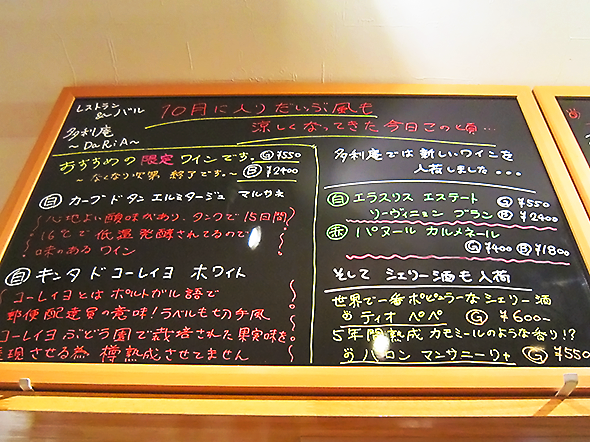 レストラン
&〜バル
多利庵
〜DaRiA〜
10月に入りだいぶ風も
涼しくなってきた今日この頃…
おすすめの限定ワインです。 Ⓖ¥550
〜なくなり次第 終了です。〜 Ⓑ¥2400
㊐ カーブドタン エルミタージュ マルサネ
心地よい酸味があり、タンクで15日間
16℃で低温発酵されてるので
味のあるワイン
㊐ キンタ ド コーレイヨ ホワイト
コーレイヨとはポルトガル語で
郵便配達員の意味!ラベルも切手風
コーレイヨぶどう園で栽培された果実味を
現させる為 樽熟成させてません
多利庵では新しいワインを
入荷しました...
白 エラスリス エステート Ⓖ¥550
ソーヴィニョン ブラン Ⓑ¥2400
赤 パヌール カルメネール
Ⓖ¥400 Ⓑ¥1800
そして シェリー酒も入荷
世界で一番ポピュラーなシェリー酒
ティオ ペペ Ⓖ ¥600-
5年間熟成 カモミールのような香り!?
バロン マンサニーリャ Ⓖ ¥550